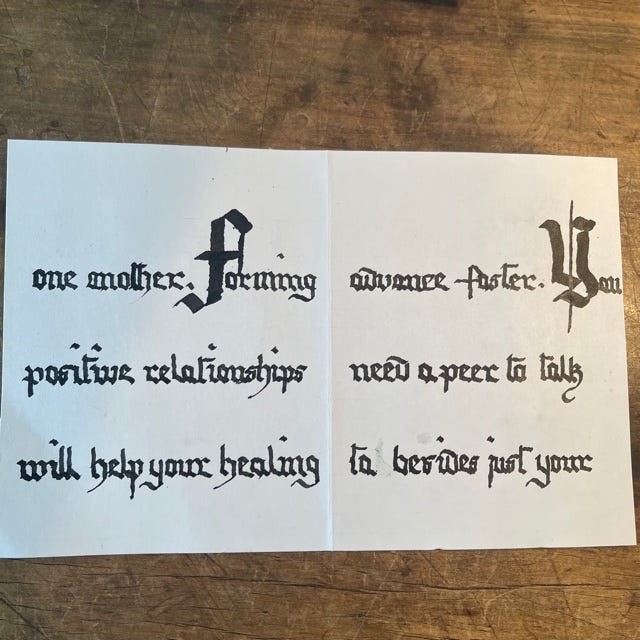 one another. Forming
positive relationships
will help your healing
advance faster. You
need a peer to talk
to besides just your